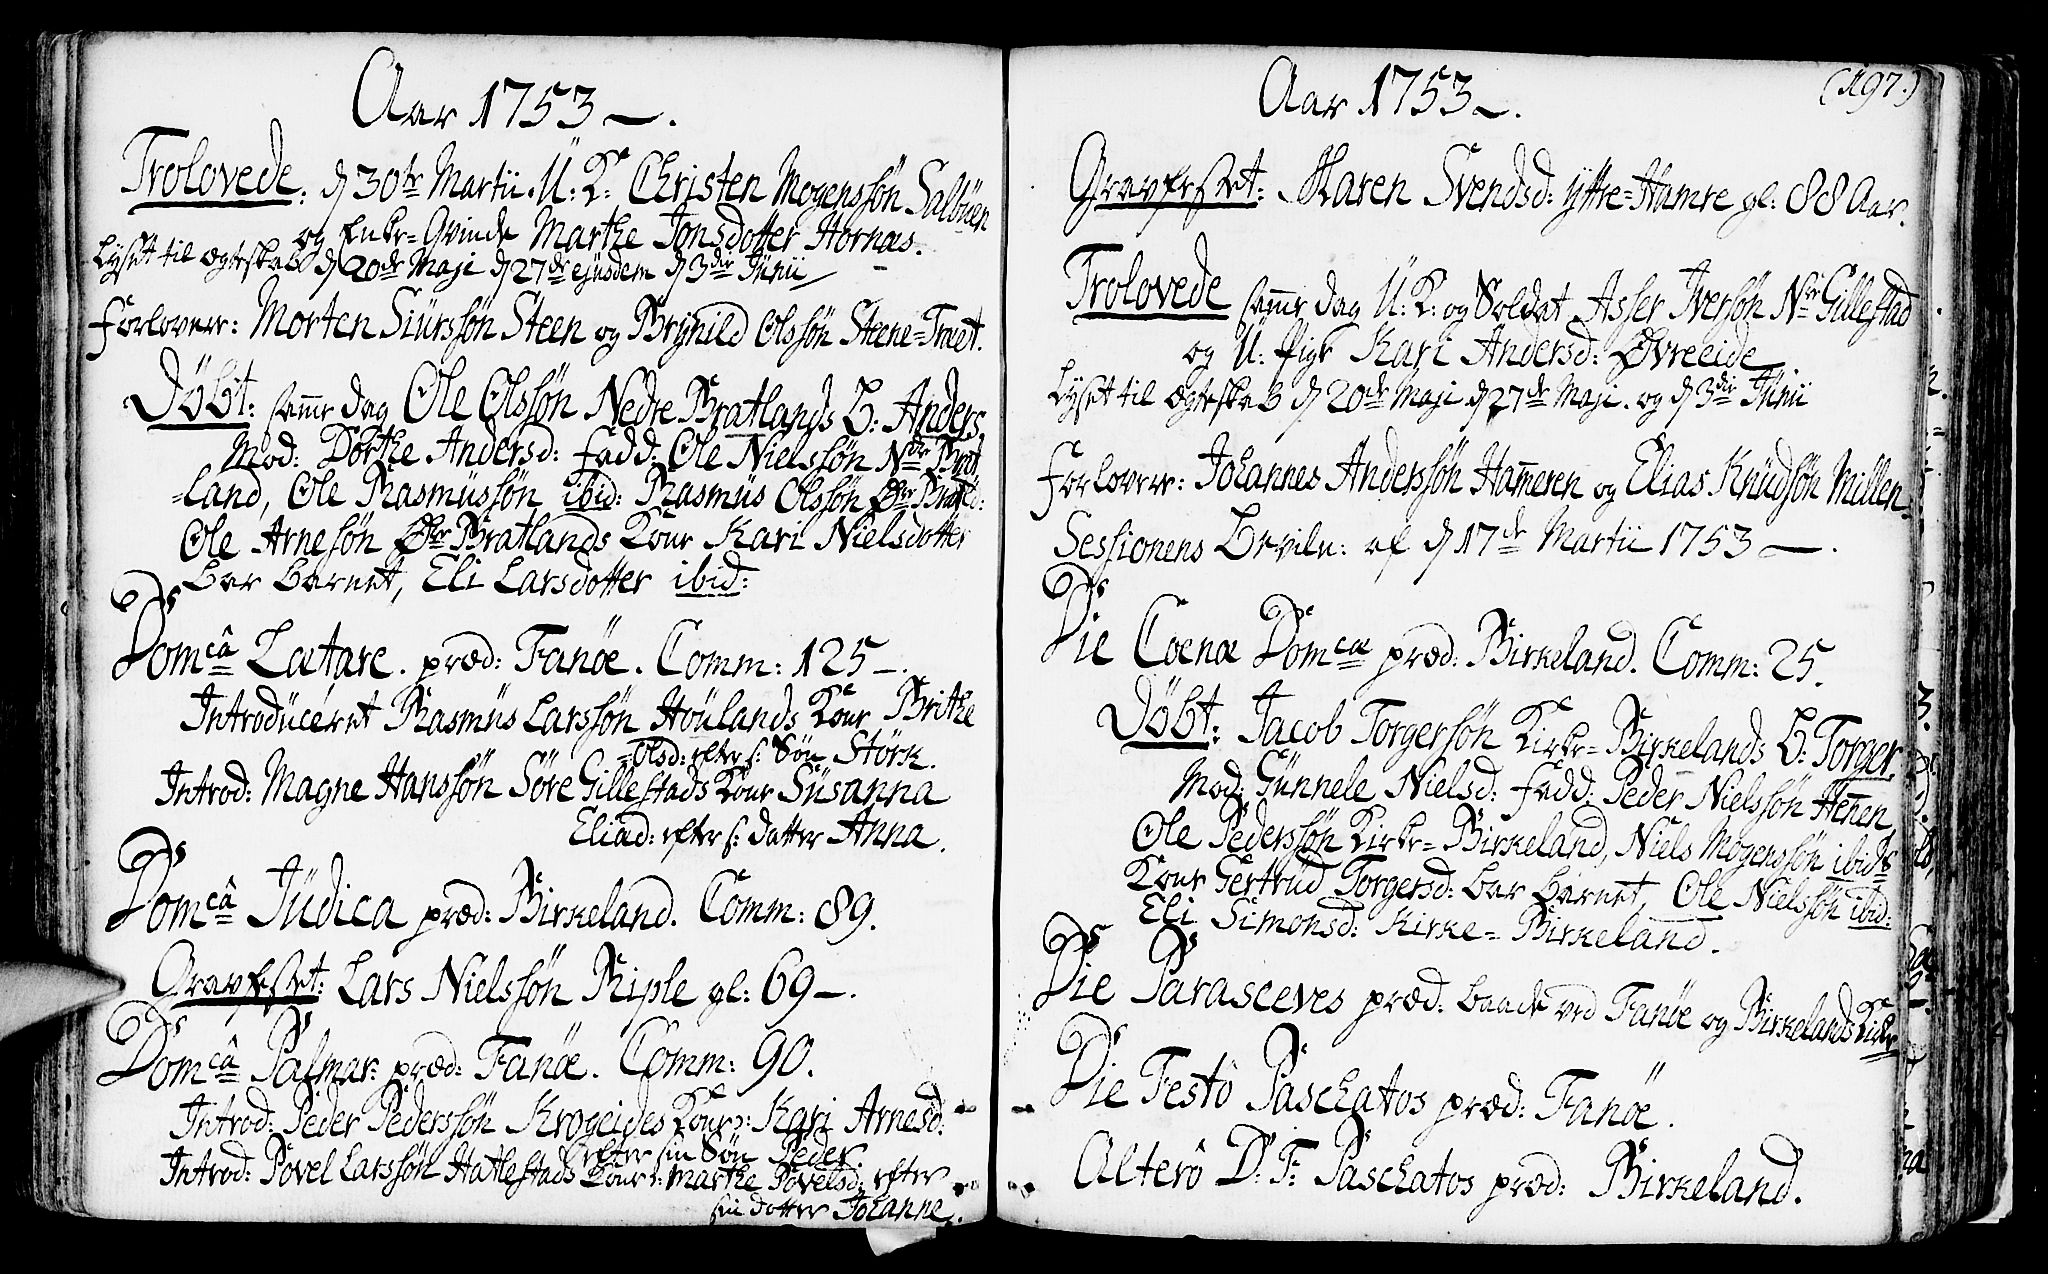 Aar 1753 —.
Trolovede: d 30te Martii. U: K: Christen Mogenssøn Salbuen
og Enke-Qvinde Marthe Jonsdotter Hornæs.
Lyset til Ægteskab d 20de Maji d 27de ejusdem d 3die Junii
Forlovere: Morten Siurssøn Steen og Brÿnild Olssøn Steene-Træt.
Döbt: samme dag Ole Olssøn Nedre Bratlands b: Anders,
Mod: Dorthe Andersd: Fadd: Ole Nielssøn Ndr Brat
-land, Ole Rasmussøn ibid: Rasmus Olssøn Øvr Bratld:
Ole Arnesøn Øvr Bratlands Kone Kari Nielsdotter
bar barnet, Eli Larsdotter ibid:
Domcâ Lætare. præd: Fanöe. Comm: 125 —.
Introduceret Rasmus Larssøn Höulands Kone Brithe
-Olsd: efter s: Søn Störk.
Introd: Magne Hanssøn Söre Gillestads Kone Susanna
Eliad: efter s: datter Anna.
Domcâ Judica præd: Birkeland. Comm: 89.
Gravfestet: Lars Nielssøn Riple gl: 69 —.
Domcâ Palmar: præd: Fanöe. Comm: 90.
Introd: Peder Pederssøn Krogeides Kone: Kari Arnesd:
efter sin Søn Peder.
Introd: Povel Larssøn Hatlestads Kone: Marthe Povelsd: efter
sin datter Johanne.
Aar 1753 —.
(197.)
Gravfestet: Maren Svendsd: Ytre-Hamre gl: 88 Aar.
Trolovede samme dag U: K: og Soldat Asser Iversøn Nrr Gillestad
og U: Pige Kari Andersd: Øvreeide
Lyset til Ægteskab d 20de Maji d 27de Maji. og d 3die Junii
Forlovere: Johannes Anderssøn Hammeren og Elias Knudsøn Millen.
Sessionens beviln: af d 17de Martii 1753 —.
Die Coenæ Domcæ præd: Birkeland. Comm: 25.
Döbt: Jacob Torgersøn Kirke-Birkelands b: Torger.
Mod: Gunnele Nielsd: Fadd: Peder Nielssøn Hennen,
Ole Pederssøn Kirke-Birkeland, Niels Mogenssøn ibids
Kone Gertrud Torgersd: bar barnet, Ole Nielssøn ibid:
Eli Simonsd: Kirke-Birkeland.
Die Parasceves præd: baade ved Fanöe og Birkelands Kirke
Die Festô Paschatos præd: Fanöe.
Alterô D: F: Paschatos præd: Birkeland.